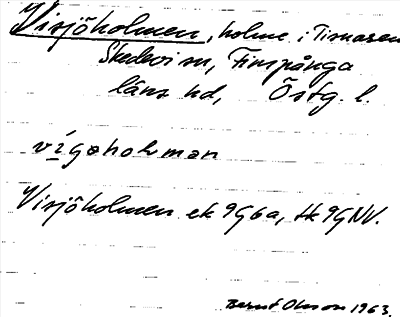 Visjöholmen, holme i Tisnaren
Skedevi sn, Finspånga
läns hd, Östg. l.
vígəholmən
Visjöholmen ek 9G6a, tk 9GNV.
Bernt Olsson 1963.